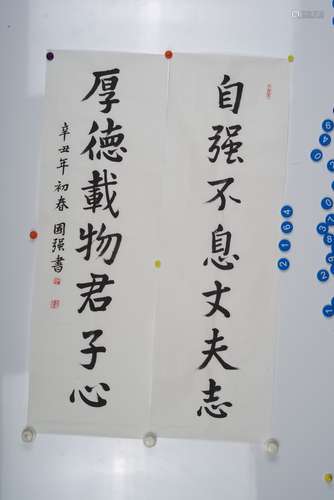 自强不息丈夫志
厚德載物君子心
辛丑年初春
國强書
2164